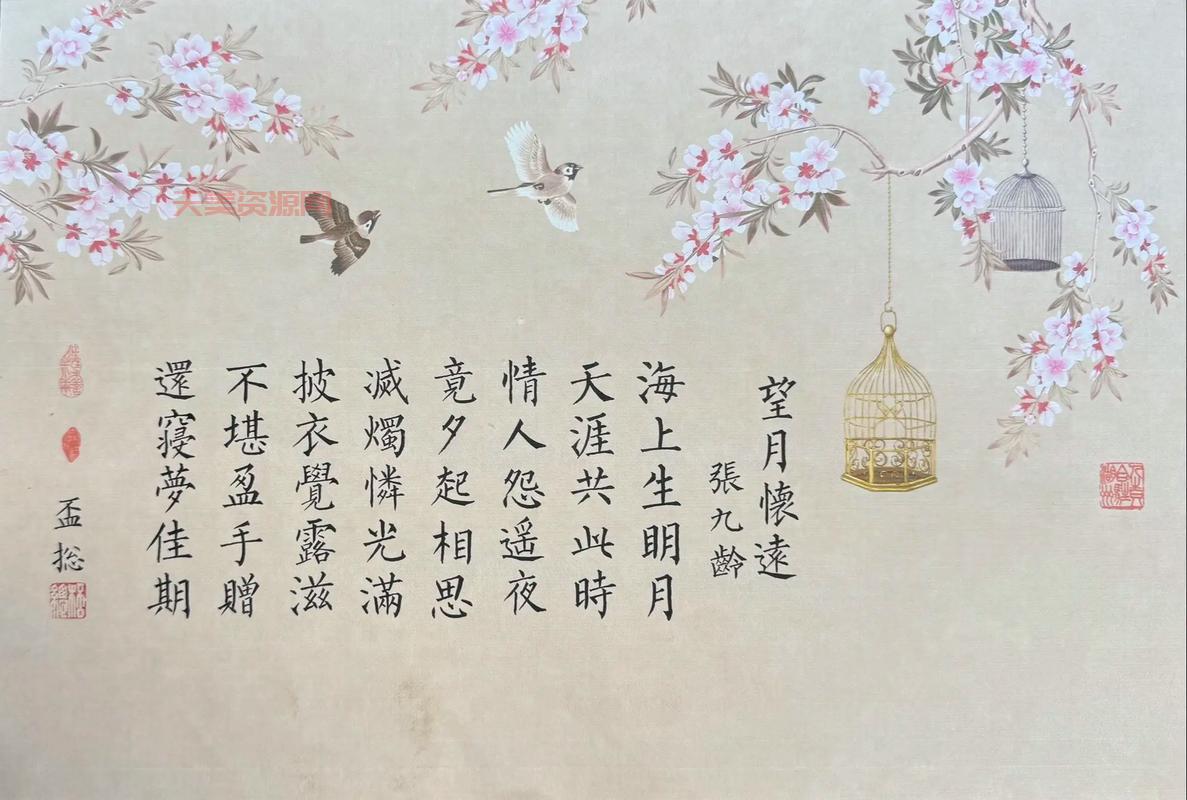 望月懷遠
張九齡
海上生明月
天涯共此時
情人怨遥夜
竟夕起相思
滅燭憐光滿
披衣覺露滋
不堪盈手贈
還寢夢佳期
天美资源网